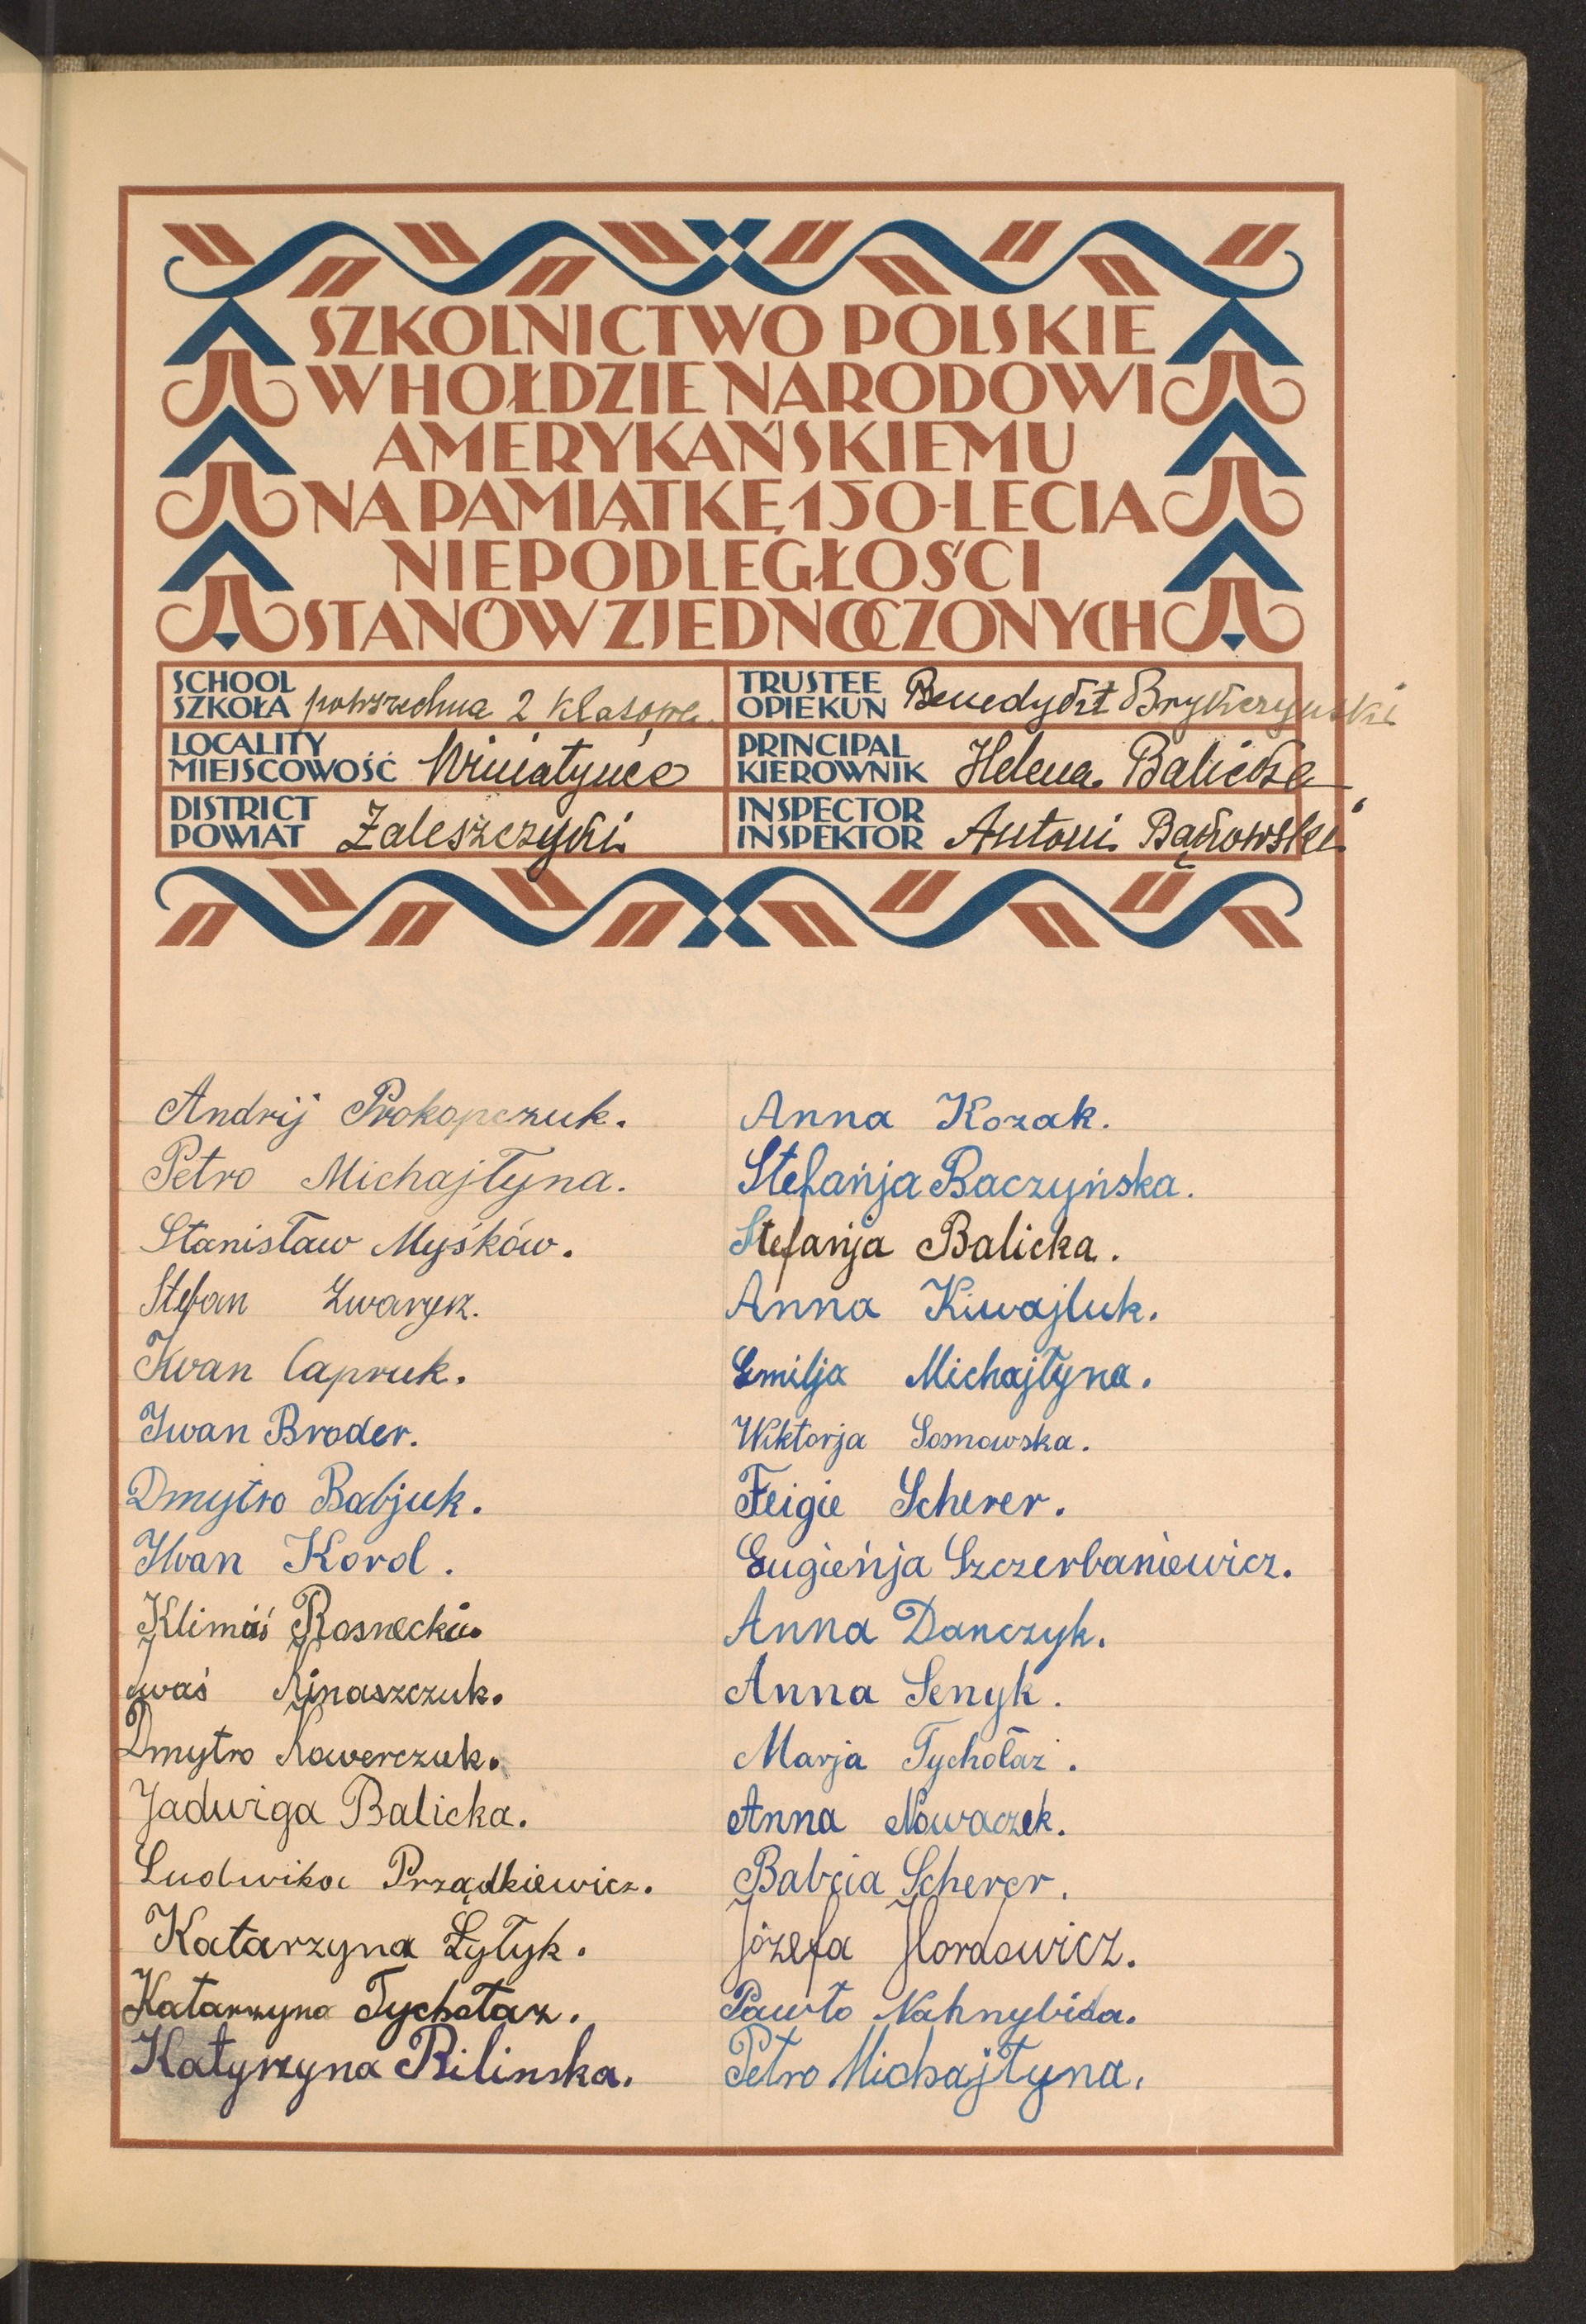 SZKOLNICTWO POLSKIE
W HOŁDZIE NARODOWI
AMERYKAŃSKIEMU
NA PAMIĄTKĘ 150-LECIA
NIEPODLEGŁOŚCI
STANÓW ZJEDNOCZONYCH
SCHOOL
SZKOŁA powszechna 2 klasowa
TRUSTEE
OPIEKUN Benedykt Brykczyński
LOCALITY
MIEJSCOWOŚĆ Winiatyńce
PRINCIPAL
KIEROWNIK Helena Balicka
DISTRICT
POWIAT Zaleszczycki
INSPECTOR
INSPEKTOR Antoni Bąkowski
Andrij Prokopczuk.
Petro Michajłyna.
Stanisław Myśków.
Stefan Zwarycz.
Iwan Capruk.
Iwan Broder.
Dmytro Babjuk.
Iwan Korol.
Klimaś Rosnecki.
Iwaś Kinaszczuk.
Dmytro Kawerczuk.
Jadwiga Balicka.
Ludwika Prządkiewicz.
Katarzyna Łytyk.
Katarzyna Tychołaz.
Katyrzyna Rilinska.
Anna Kozak.
Stefańja Baczyńska.
Stefanja Balicka.
Anna Kiwajluk.
Emilja Michajłyna.
Wiktorja Somowska.
Feigie Scherer.
Eugieńja Szczerbaniewicz.
Anna Danczyk.
Anna Senyk.
Marja Tychołaz.
Anna Nowaczek.
Babcia Scherer.
Józefa Hordowicz.
Pawło Nahnybida.
Petro Michajłyna.